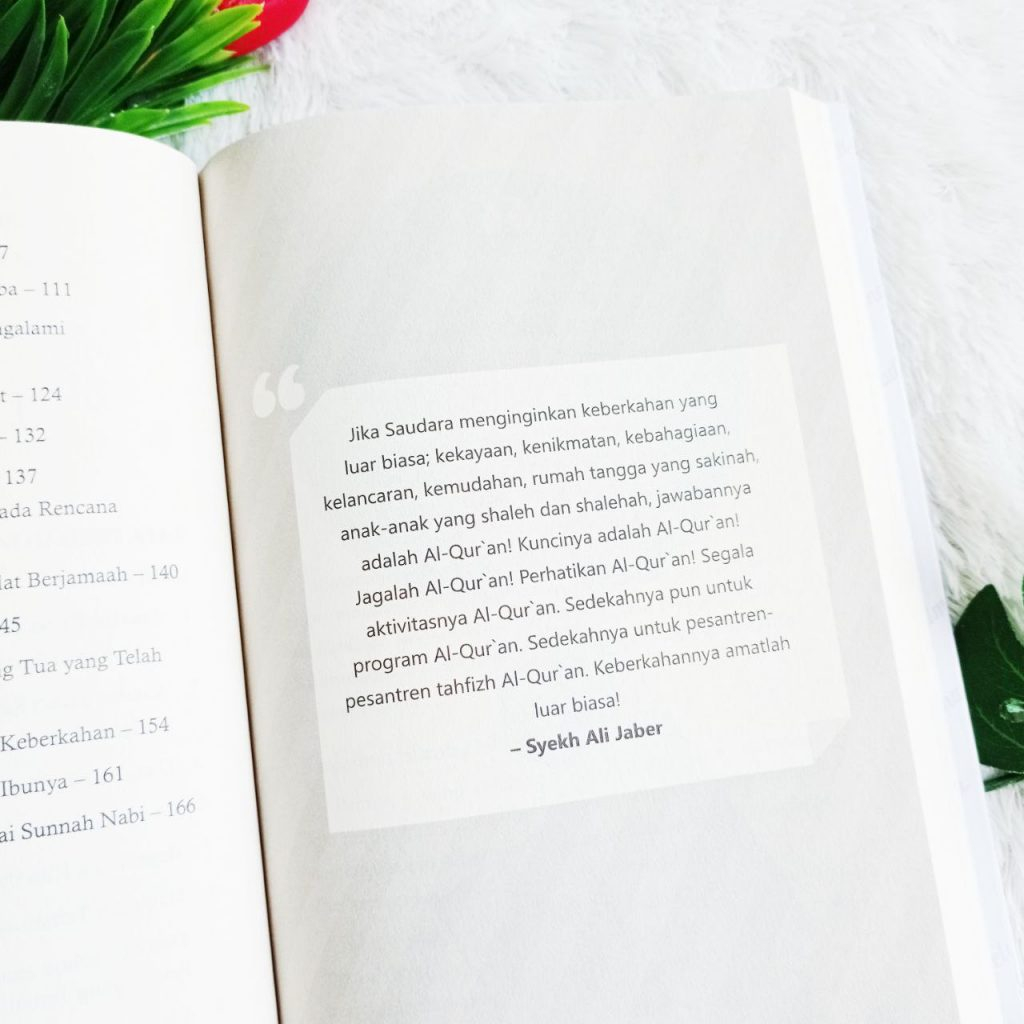 7
– 111
t – 124
– 132
137
ada Rencana
Berjamaah – 140
45
Tua yang Telah
Keberkahan – 154
Ibunya – 161
Sunnah Nabi – 166
“
Jika Saudara menginginkan keberkahan yang
luar biasa; kekayaan, kenikmatan, kebahagiaan,
kelancaran, kemudahan, rumah tangga yang sakinah,
anak-anak yang shaleh dan shalehah, jawabannya
adalah Al-Qur`an! Kuncinya adalah Al-Qur`an!
Jagalah Al-Qur`an! Perhatikan Al-Qur`an! Segala
aktivitasnya Al-Qur`an. Sedekahnya pun untuk
program Al-Qur`an. Sedekahnya untuk pesantren-
pesantren tahfizh Al-Qur`an. Keberkahannya amatlah
luar biasa!
– Syekh Ali Jaber